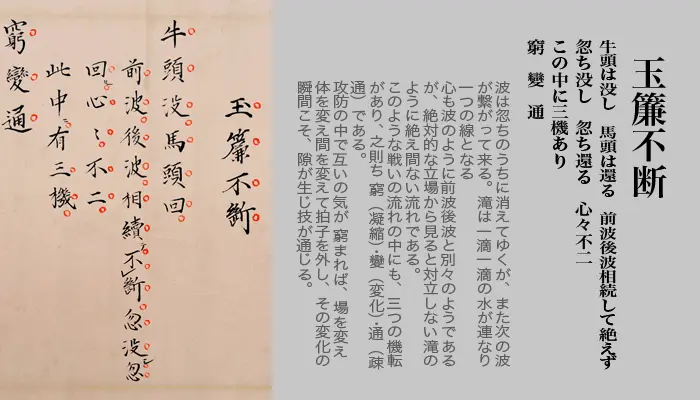 玉簾不断
牛頭は没し　馬頭は還る　前波後波相続して絶えず
忽ち没し　忽ち還る　心々不二
この中に三機あり
窮　變　通
波は忽ちのうちに消えてゆくが、また次の波
が繋がって来る。滝は一滴一滴の水が連なり
一つの線となる
心も波のように前波後波と別々のようである
が、絶対的な立場から見ると対立しない滝の
ように絶え間ない流れである。
このような戦いの流れの中にも、三つの機転
があり、之則ち 窮（凝縮）・變（変化）・通（疎
通）である。
攻防の中で互いの気が 窮まれば、場を変え
体を変え間を変えて拍子を外し、その変化の
瞬間こそ、隙が生じ技が通じる。
玉簾不断
牛頭没馬頭回
前波後波相續不断忽没忽
回心〻不二
此中有三機
窮變通